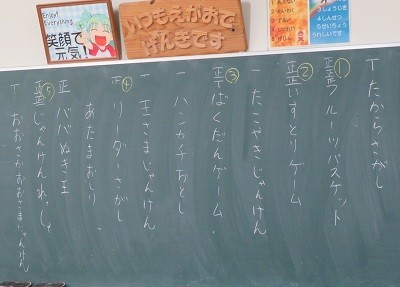 Enjoy!
Everything
笑顔で
元気!
いつもえがおで
げんきです
Tたからさがし
① フルーツバスケット
② いすとりゲーム
一 たこやきじゃんけん
③ ばくだんゲーム
一 ハンカチおとし
一 王さまじゃんけん
④ リーダーさがし
あたまおしり
正 ババぬき王
⑤ じゃんけんれっしゃ
T おおさかおおさまじゃんけん